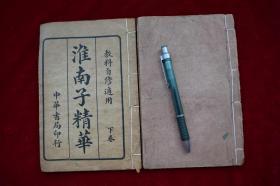 教科自修適用
淮南子精華
下卷
中華書局印行